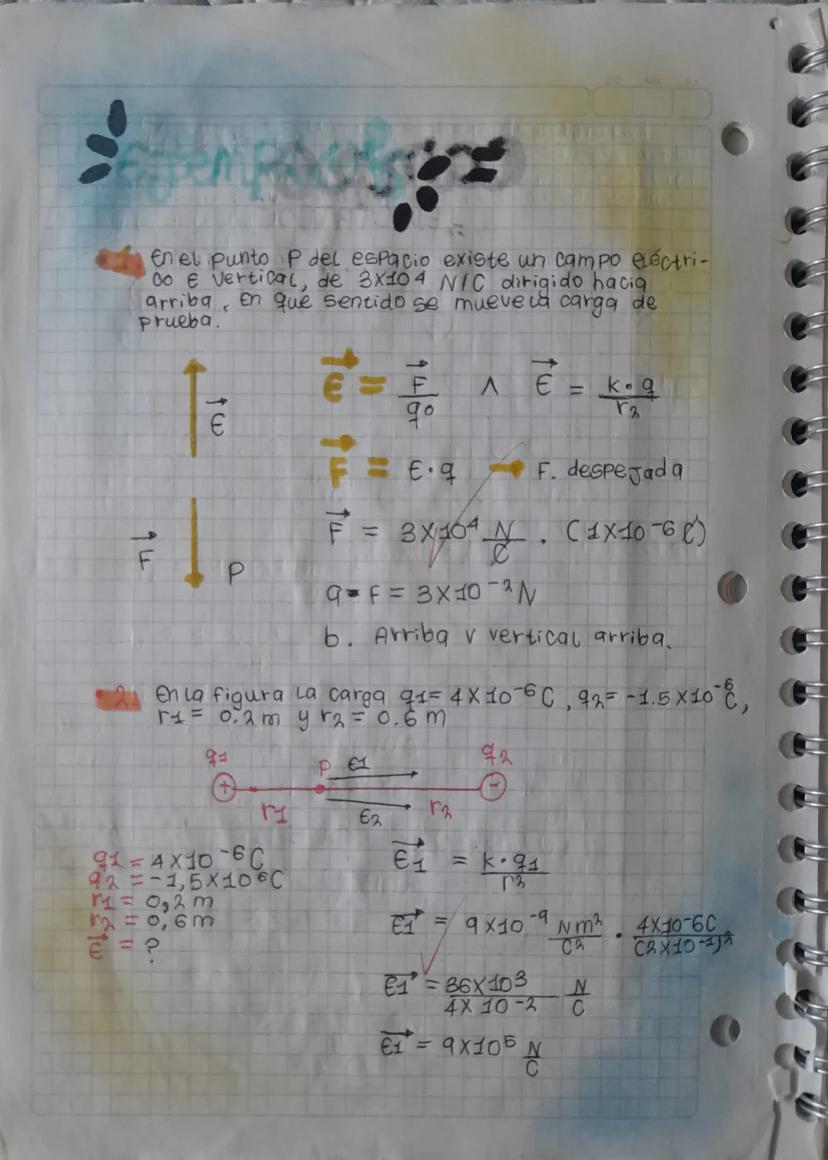 Ejemplos
1. En el punto P del espacio existe un campo eléctri-
co E vertical, de 3x10⁴ N/C dirigido hacia
arriba. En que sentido se mueve la carga de
prueba.
E = F/q0 ∧ E = k·q/r2
E
F = E·q → F. despejada
F = 3x10⁴ N/C . (1x10⁻⁶C)
F P
a- F = 3x10⁻²N
b. Arriba v vertical arriba.
2. En la figura la carga q1= 4x10⁻⁶C, q2= -1.5x10⁻⁶C,
r1= 0.2m y r2= 0.6m
q1 P E1 q2
+ -
r1 E2 r2
q1= 4x10⁻⁶C
q2= -1,5x10⁶C
r1= 0,2m
r2= 0,6m
E = ?
E1 = k·q1/r²
E1 = 9x10⁻⁹ Nm²/C² . 4x10⁻⁶C/(2x10⁻¹)²
E1 = 36x10³/4x10⁻² N/C
E1 = 9x10⁵ N/C